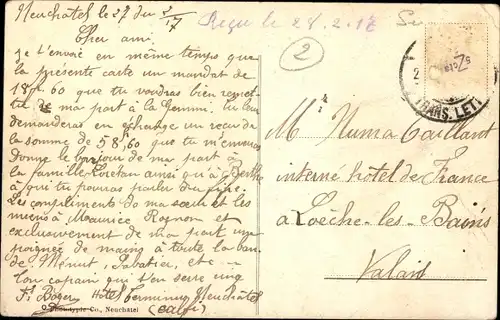 Neuchâtel le 27 du 2/17
Reçu le 28.2.17
Cher ami.
je t'envoie en même temps que
la présente carte un mandat de
60 que tu voudras bien remet-
tre de ma part à la Gemmi. Tu leur
demanderas en échange un reçu de
la somme de 58,60 que tu m'enverras
Donne le bonjour de ma part à
la famille Loretan ainsi qu'à Berthe
à qui tu pourras parler du
Les compliments de ma sœur et les
miens à Maurice Rognon et
exclusivement de ma part une
poignée de mains à toute la ban-
de, Menut, Sabatier, etc –
Ton copain qui t'en serre une
Fs. Hôtel Terminus Neuchâtel
Phototypie Co., Neuchâtel
2
TRANS. LETT
M Numa Vaillant
interne hôtel de France
à Loèche-les-Bains
Valais